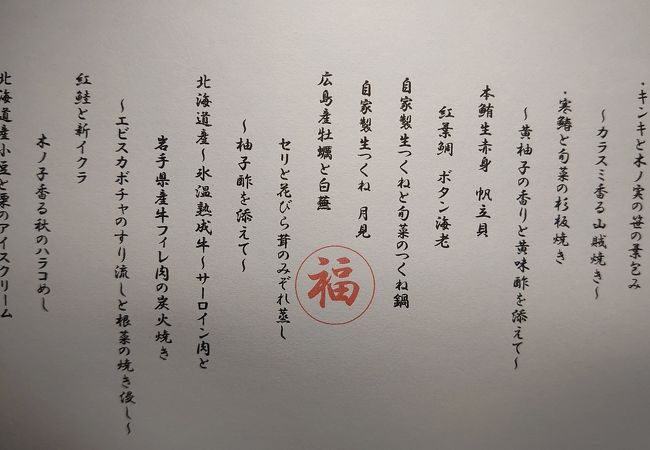 ・キンキと木ノ実の笹の葉包み
〜カラスミ香る山賊焼き〜
・寒鰆と旬菜の杉板焼き
〜黄柚子の香りと黄味酢を添えて〜
本鮪生赤身 帆立貝
紅葉鯛 ボタン海老
自家製生つくねと旬菜のつくね鍋
自家製生つくね 月見
広島産牡蠣と白蕪
セリと花びら茸のみぞれ蒸し
〜柚子酢を添えて〜
福
北海道産〜氷温熟成牛〜サーロイン肉と
岩手県産牛フィレ肉の炭火焼き
〜エビスカボチャのすり流しと根菜の焼き浸し〜
紅鮭と新イクラ
木ノ子香る秋のハラコめし
北海道産小豆と栗のアイスクリーム